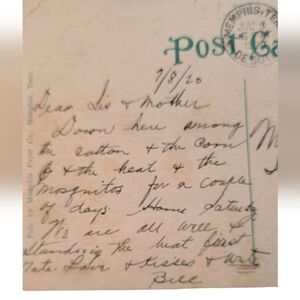 MEMPHIS, TEN
POST CA
7/8/20
Dear Sis & Mother
Down here among
the cotton & the corn
& the heat & the
Mosquitos for a couple
of days Home Saturday
We are all well &
Standing the heat first
rate. Love & kisses & write
Bill
Pub. by Memphis Paper Co., Memphis, Tenn.